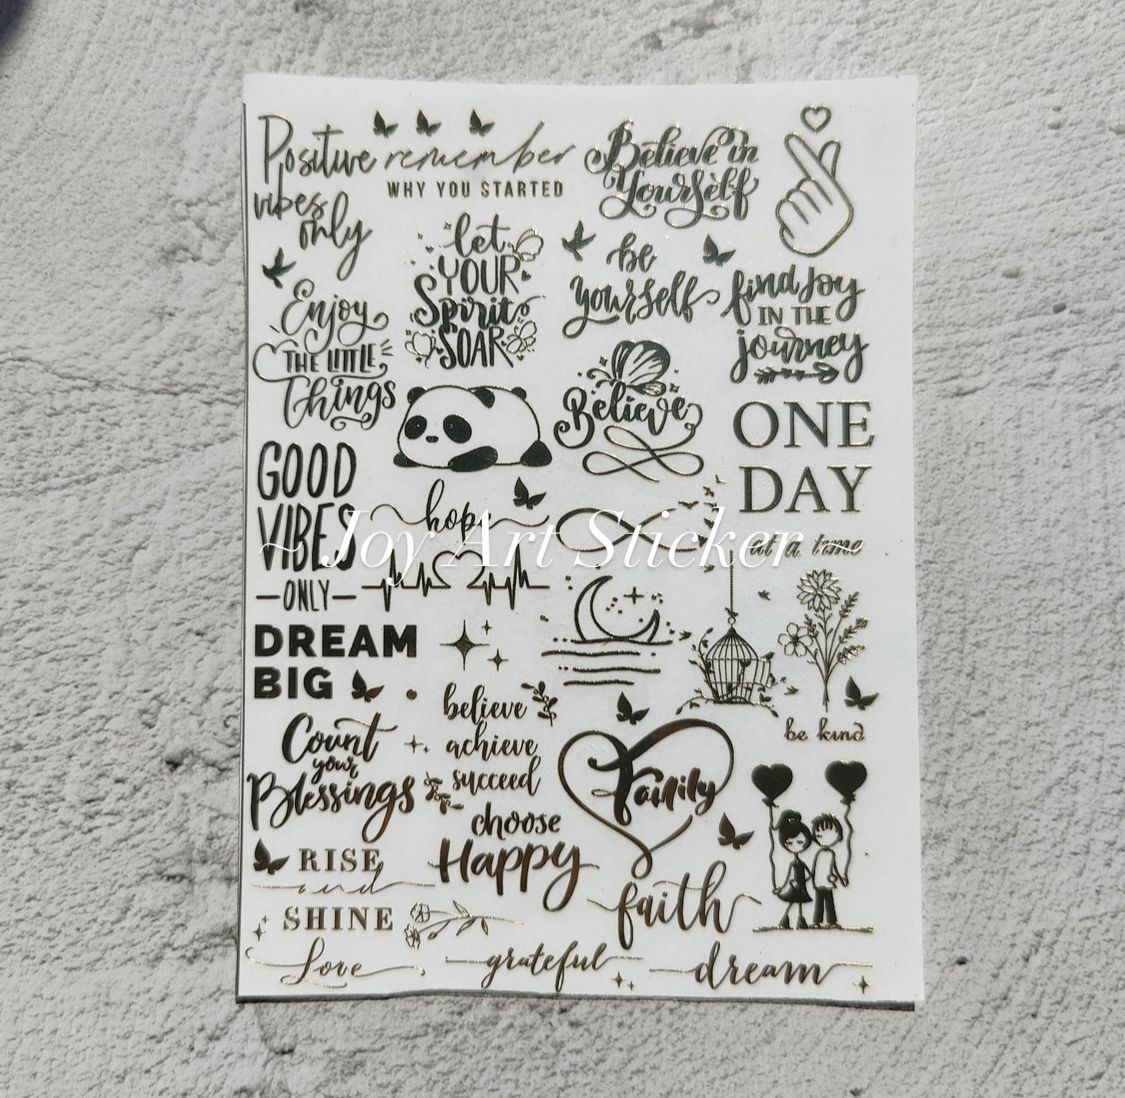 Positive
vibes
only
remember
WHY YOU STARTED
Believe in
Yourself
let
YOUR
Spirit
SOAR
be
yourself
find joy
IN THE
journey
Enjoy
THE LITTLE
Things
Believe
ONE
DAY
at a time
GOOD
VIBES
ONLY
hope
~ Joy Art Sticker ~
DREAM
BIG
believe
achieve
succeed
be kind
Count
your
Blessings
Family
choose
Happy
RISE
and
SHINE
faith
Love
grateful
dream